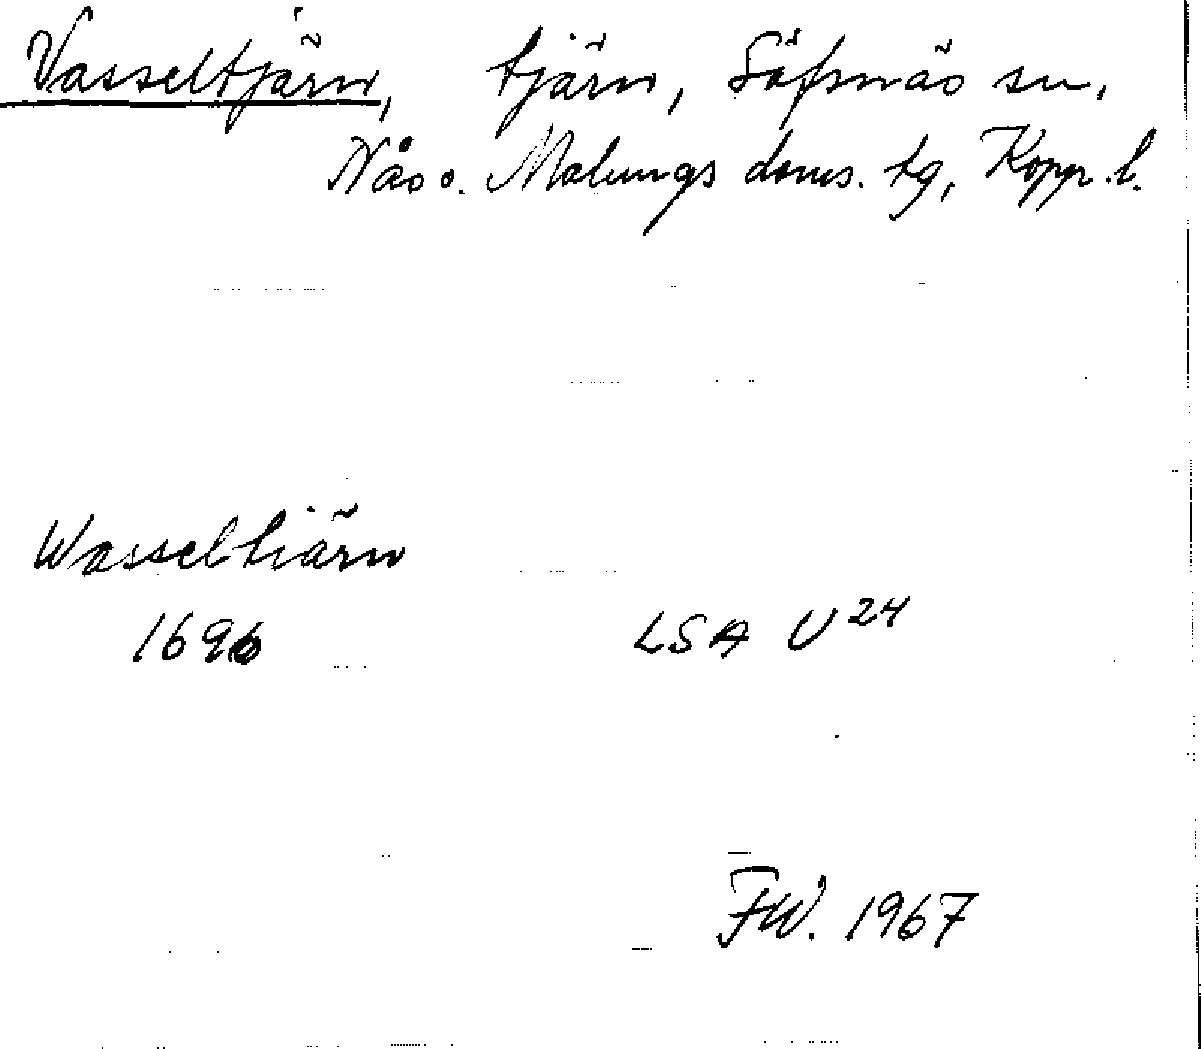 Vasseltjärn, tjärn, Säfsnäs sn,
Nås o. Malungs doms. tg, Kopp. l.
Wasseltiärn
1696 LSA U24
FW. 1967